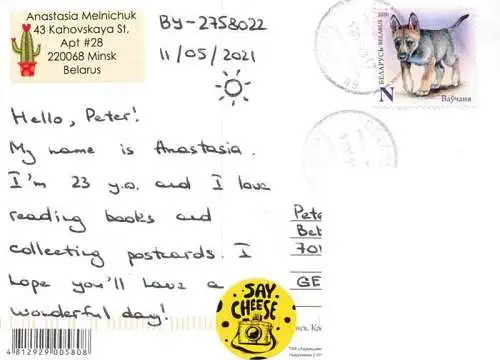 Anastasia Melnichuk
43 Kahovskaya St,
Apt #28
220068 Minsk
Belarus
BY-2758022
11/05/2021
БЕЛАРУСЬ BELARUS
N
Ваўчаня
Hello, Peter!
My name is Anastasia.
I'm 23 y.o. and I love
reading books and
collecting postcards. I
hope you'll have a
wonderful day!
Pete
Be
701
GE
SAY
CHEESE
4 812929 005808